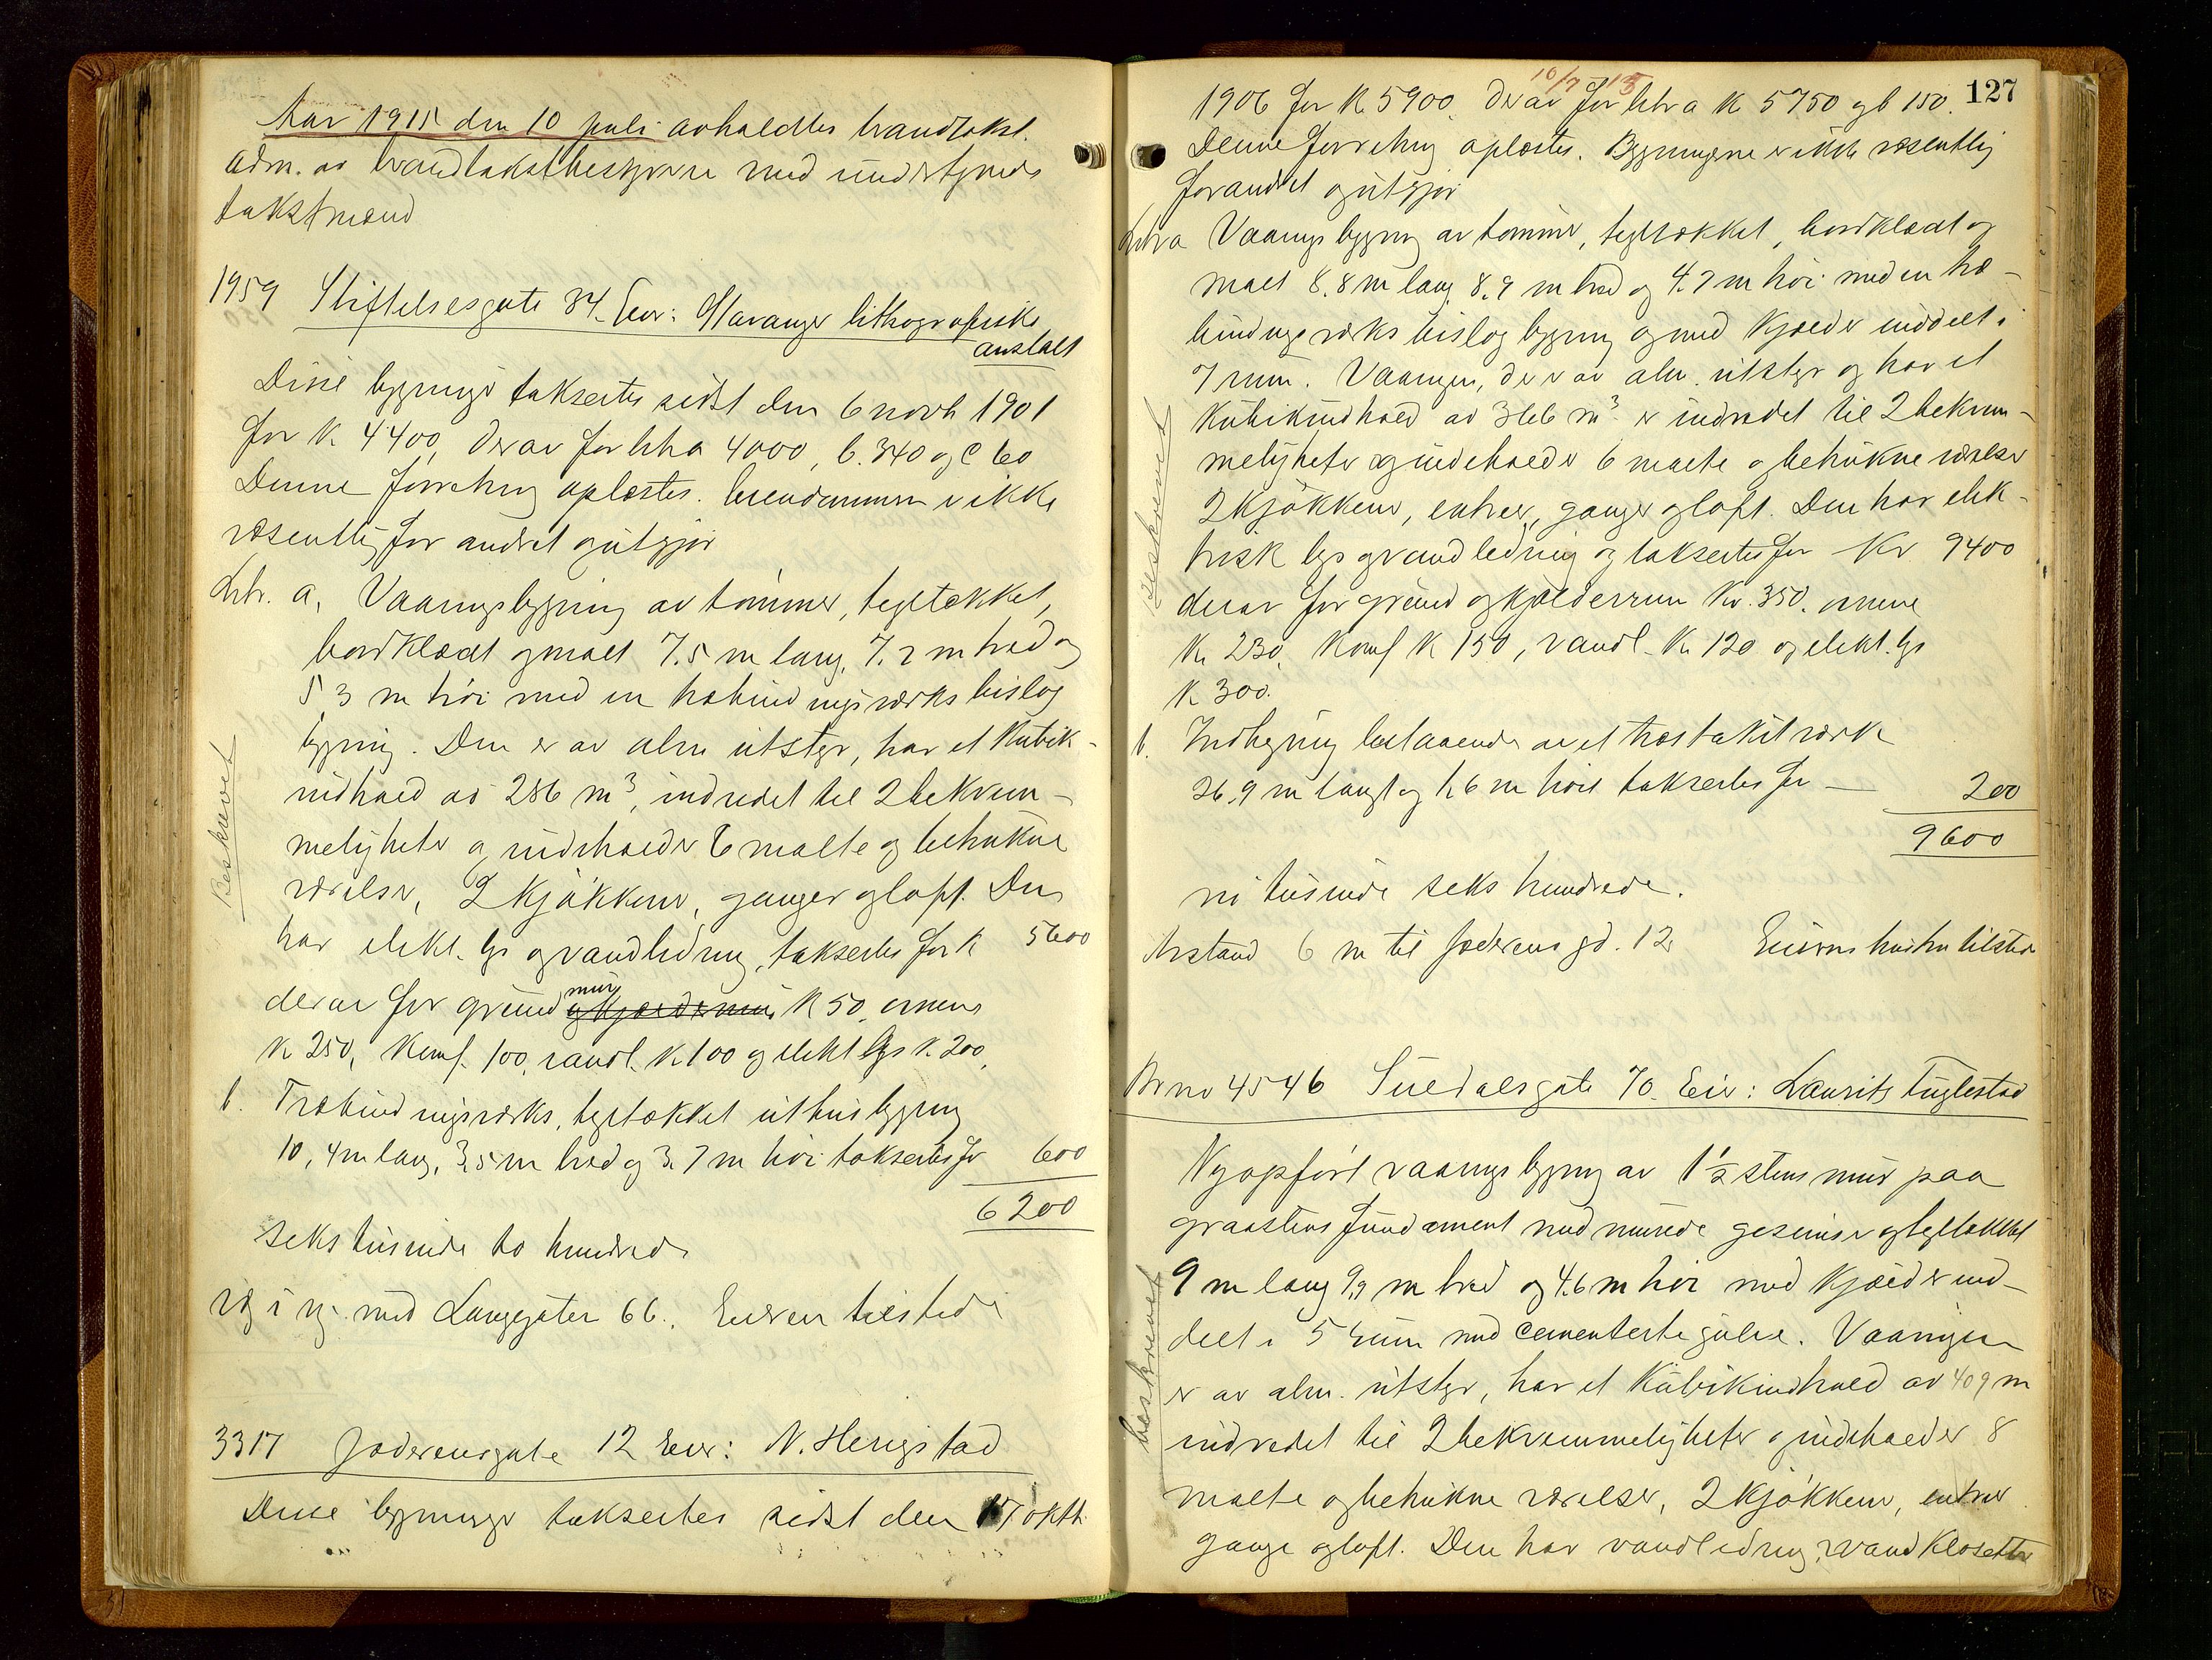 Aar 1915 den 10 juli avholdtes brandtakst
adm. av brandtakstbestyrer med undertegnede
takstmænd
1959 Stiftelsesgate 34. Eier: Stavanger lithografiske
anstalt
Disse bygninger taksertes sidst den 6 novb 1901
for k 4400, derav for litra 4000, b. 340 og c 60
Denne forretning oplæstes. Eiendommen er ikke
væsentlig forandret og utgjør
Litr. a, Vaaningsbygning av tømmer, tegltækket,
bordklædt og malt 7.5 m lang, 7.2 m bred og
5.3 m høi med en træbindingsværks bislag
bygning. Den er av alm utstyr, har et Kubik-
indhold av 286 m³, indredet til 2 bekvem-
meligheter og indeholder 6 malte og betrukne
værelser, 2 kjøkkener, ganger og loft. Den
har elekt. lys og vandledning, taksertes for k 5600
derav for grund mur og kjeldermur K 50, ovnene
K 250, Komf. 100, vandl. K 100 og elekt lys K 200,
b. Træbindingsværks, tegltækket uthusbygning
10,4 m lang, 3,5 m bred og 3.7 m høi taksertes for 600
6200
seks tusinde to hundrede
væg i væg med Langgaten 66. Eieren tilstede
Beskrevet
3317 Jæderensgate 12 Eier: N. Herigstad
Disse bygninger taksertes sidst den 17 oktb.
127
10/7 15
1906 for K 5900. Derav for litra K 5750 og b 150.
Denne forretning oplæstes. Bygningene er ikke væsentlig
forandret og utgjør
Litra Vaaningsbygning av tømmer, tegltækket, bordklædt og
malt 8.8 m lang 8.9 m bred og 4.7 m høi med en træ-
bindingsværks bislag bygning og med kjelder inddelt i
7 rum. Vaaningen, der er av alm. utstyr og har et
Kubikindhold av 366 m³ er indredet til 2 bekvem-
meligheter og indeholder 6 malte og betrukne værelser
2 kjøkkener, entreer, ganger og loft. Den har elek-
trisk lys og vandledning og taksertes for Kr 9400
derav for grund og kjelderrum Kr. 350. ovnene
K. 230, Komf K 150, vandl. K. 120 og elekt. lys
K 300.
b. Indhegning bestaaende av et træstakitværk
26.9 m langt og 1.6 m høit taksertes for — 200
9600
ni tusinde seks hundrede.
Avstand 6 m til Jæderens gd. 12 Eierens hustru tilstede
Beskrevet
Br no 4546 Suldalsgate 70. Eier: Laurits Fuglestad
Nyopført vaaningsbygning av 1½ stens mur paa
graastens fundament med murede gesimser og tegltækket
9 m lang 9,9 m bred og 4.6 m høi med kjelder ind-
delt i 5 rum med cementerte gulve. Vaaningen
er av alm. utstyr, har et Kubikindhold av 409 m
indredet til 2 bekvemmeligheter og indeholder 8
malte og betrukne værelser, 2 kjøkkener, entreer
gange og loft. Den har vandledning, vandklosetter
beskrevet